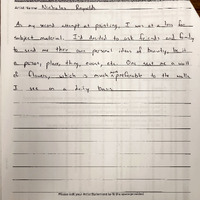 Nicholas Reynolds
As my second attempt at painting, I was at a loss for
subject material. I'd decided to ask friends and family
to send me their own personal ideas of beauty, be it
a person, place, thing, event, etc. One sent me a wall
of flowers, which is much preferable to the walls
I see on a daily basis.